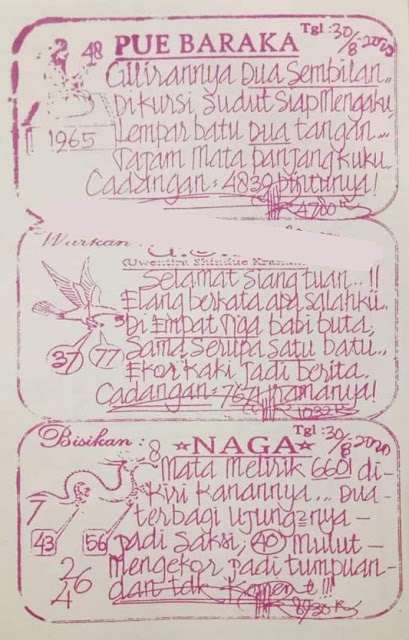 Tgl : 30/8-2020
2 48 PUE BARAKA
Gilirannya Dua Sembilan..
Dikursi Sudut Siap Mengaku
1965 Lempar batu Dua tangan...
Tajam Mata Panjang kuku.
Cadangan = 4839 Pintunya!
4700
Warkan :
(Uwentira Shindue
Selamat siang tuan..!!
Elang berkata apa salahku..
Di Empat Tiga babi buta,
37 77 Sama Serupa Satu batu..
Ekor kaki Jadi berita.
Cadangan = 7674 ramanya!
1032
Tgl : 30/8-2020
Bisikan : 8 NAGA
Mata Melirik 6601 di-
Kiri Kanannya... Dua-
7 terbagi Ujung=nya-
43 56 Jadi Saksi; 40 Mulut-
Mengekor Jadi tumpuan-
26 dan tdk Koment!!!
4 8930